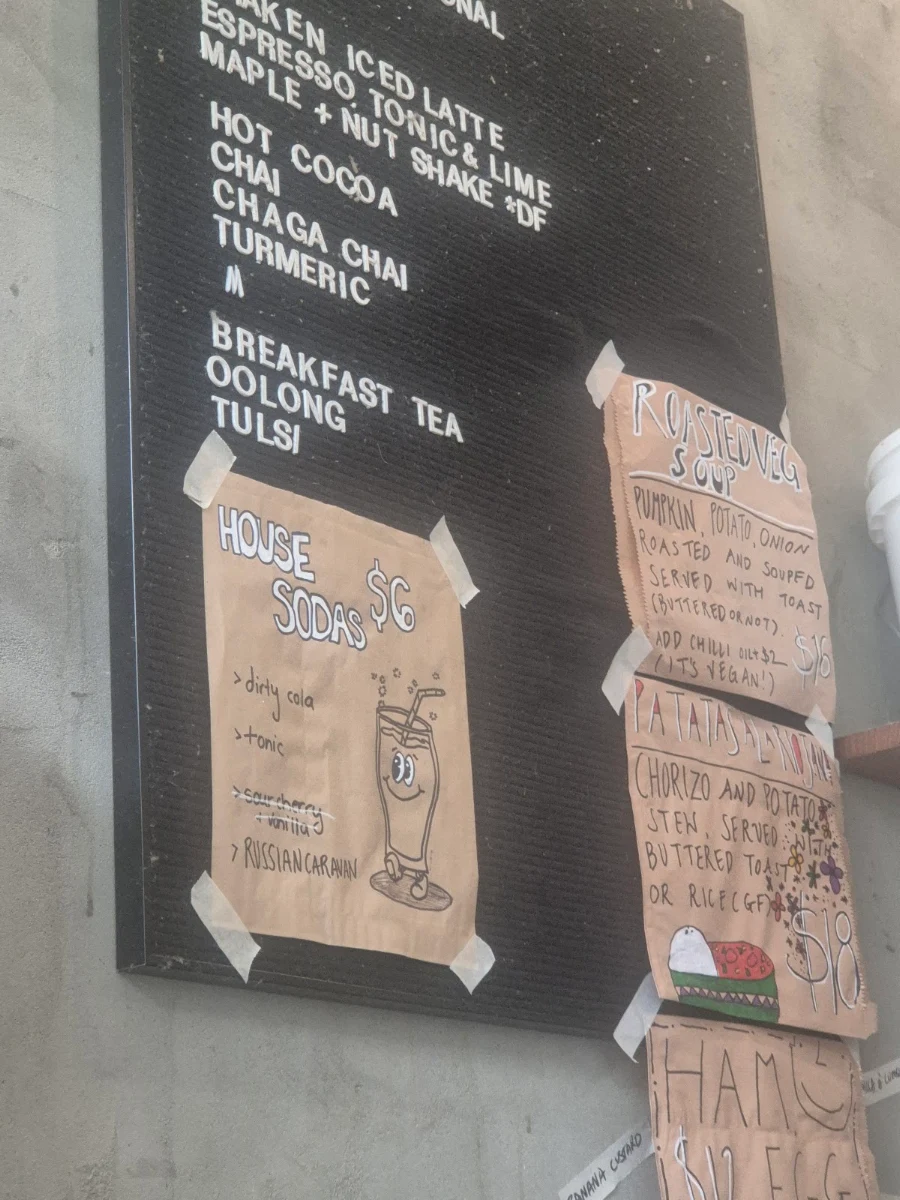 ONAL
HAKEN ICED LATTE
ESPRESSO TONIC & LIME
MAPLE + NUT SHAKE *DF
HOT COCOA
CHAI
CHAGA CHAI
TURMERIC
BREAKFAST TEA
OOLONG
TULSI
HOUSE
SODAS $6
>dirty cola
>tonic
>sour cherry
+ vanilla
> RUSSIAN CARAVAN
ROASTED VEG
SOUP
PUMPKIN, POTATO, ONION
ROASTED AND SOUPED
SERVED WITH TOAST
(BUTTERED OR NOT).
ADD CHILLI OIL +$2
(IT'S VEGAN!)
$16
PATATAS A LA RIOJANA
CHORIZO AND POTATO
STEW. SERVED WITH
BUTTERED TOAST
OR RICE (GF)
$18
HAM
$12 EGG
BANANA CUSTARD